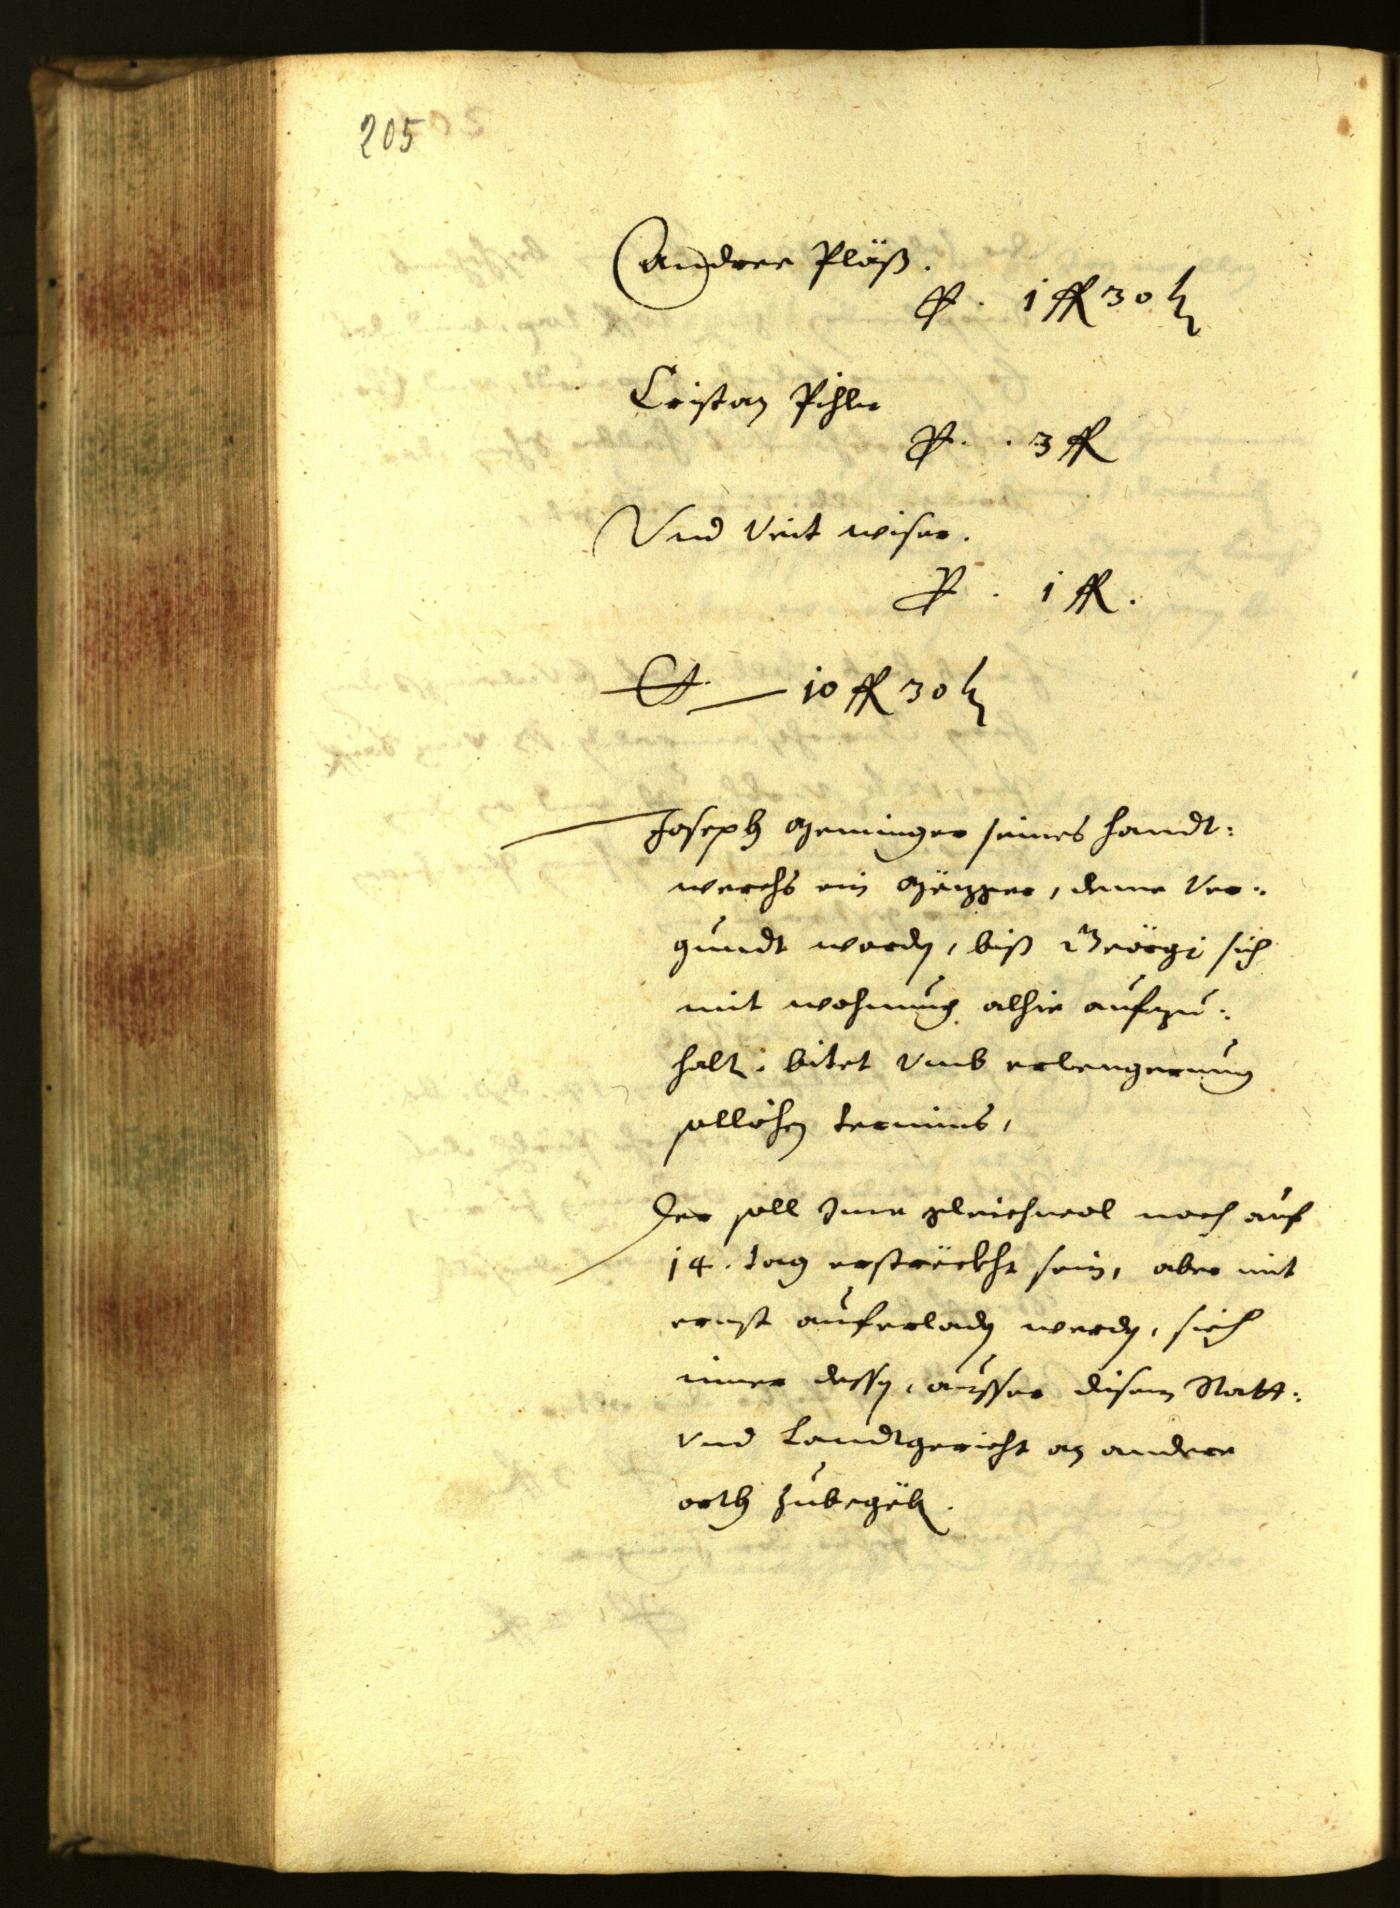 205
Andree Pläß.
p. 1 fl 30 kr
Cristan Pihler
p. . 3 fl
Vnd Veit wiser.
p. 1 fl.
10 fl 30 kr
Joseph seines handt:
werchs ein deme Ver:
gundt worden, biß Geörgi sich
mit wohnung alhie aufzu:
halten: bitet vmb erlengerung
sollichen termins,
Der soll Jme gleichwol noch auf
14. tag erströckht sein, aber mit
ernst auferladen werden, sich
inner dessen, ausser disem Statt:
vnd Landtgericht an andere
orth zubegeben.